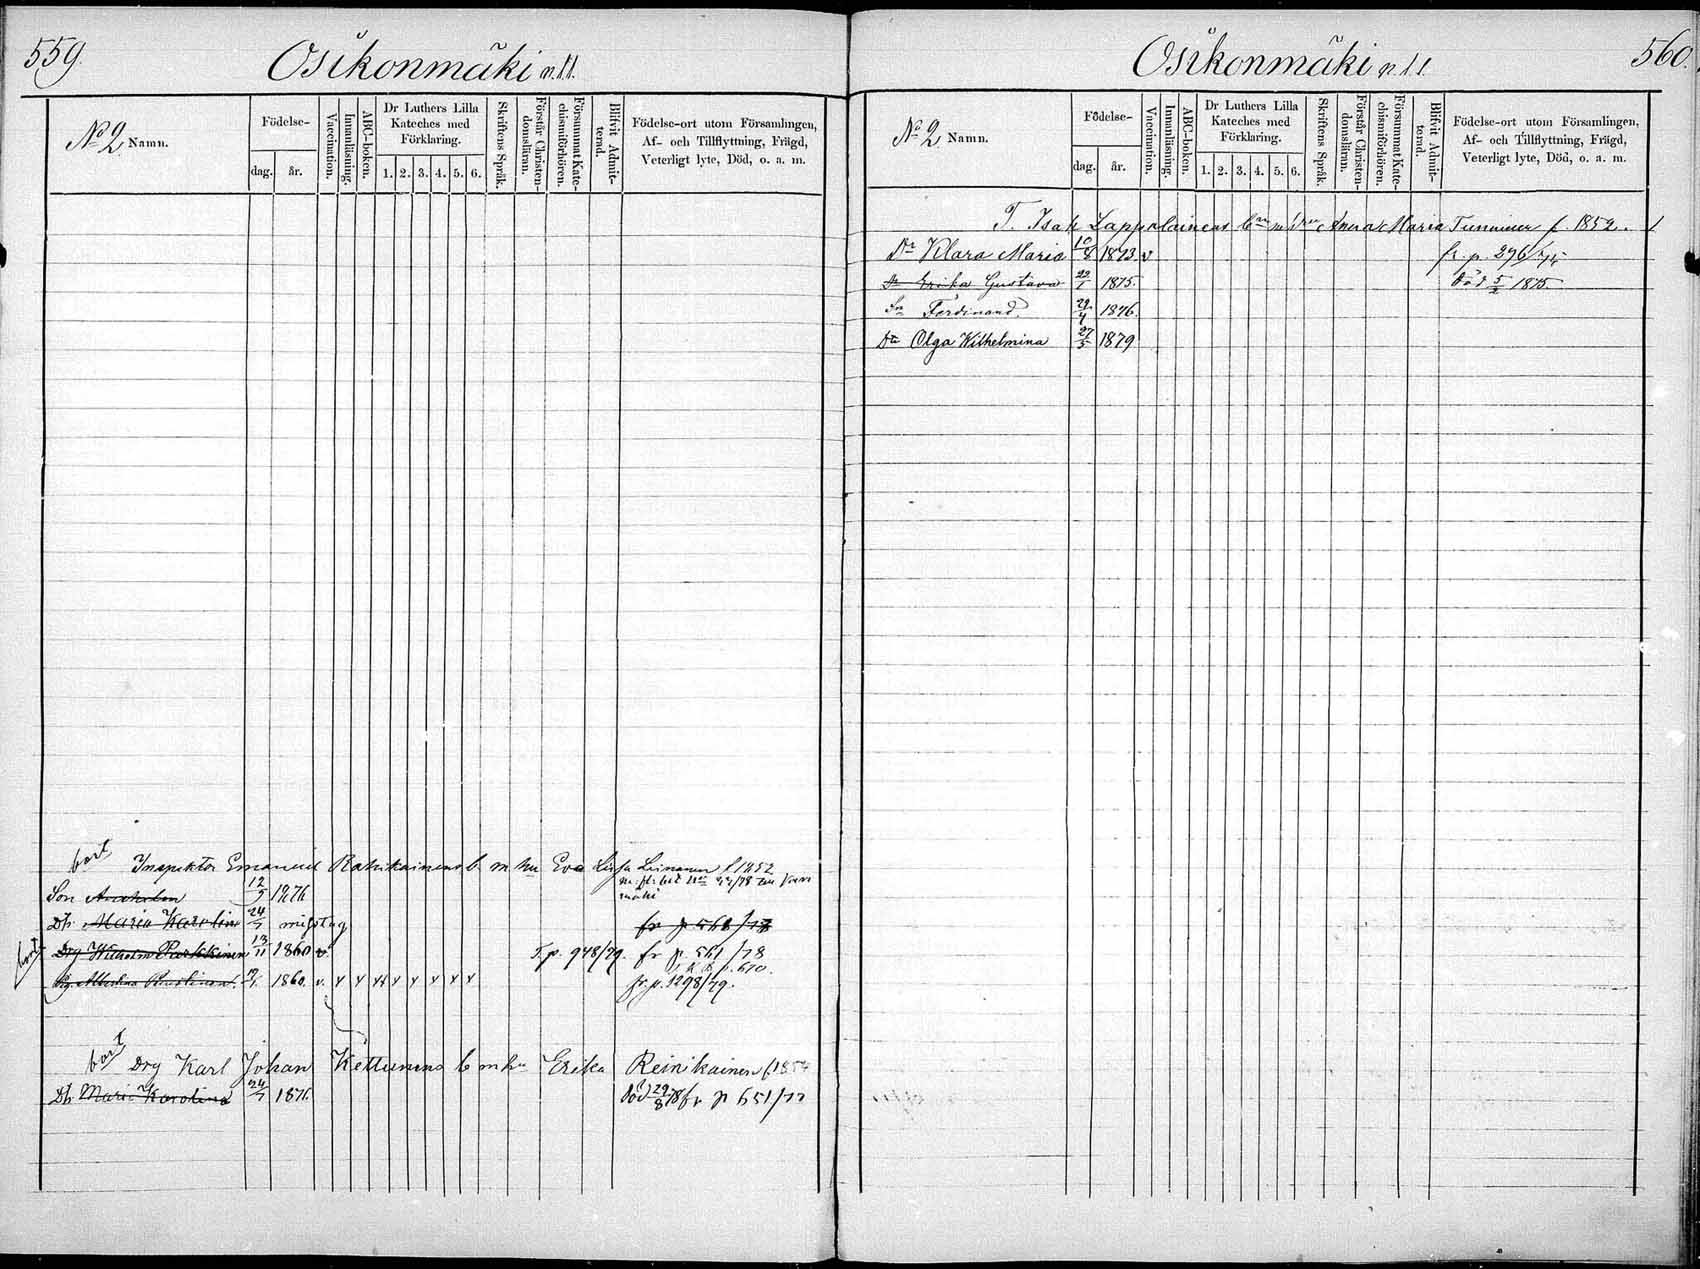 559.
Osikonmäki n:1.
No 2 Namn.
Födelse-
dag. år.
Vaccination.
Innanläsning.
ABC-boken.
Dr Luthers Lilla
Kateches med
Förklaring.
1. 2. 3. 4. 5. 6.
Skriftens Språk.
Förstår Christen-
domsläran.
Försummat Kate-
chismiförhören.
Blifvit Admit-
terad.
Födelse-ort utom Församlingen,
Af- och Tillflyttning, Frägd,
Veterligt lyte, Död, o. a. m.
bort Inspektor Emanuel b. m hu Eva Lisa f 1852
Son 12/9 1876
Dtr Maria Karolina 24/7 misstag fr p 568/78
bort Drg Wilhelm 13/11 1860 v. T.p. 948/79. fr p. 561/78
p. 670.
Albertina 1860. v. fr. p. 1298/79.
bort Drg Karl Johan Kettunens b m hu Erika Reinikainen f 1854
Dtr Maria Karolina 24/7 1876. död 29/8 78 fr p 651/77
560.
Osikonmäki n:1.
No 2 Namn.
Födelse-
dag. år.
Vaccination.
Innanläsning.
ABC-boken.
Dr Luthers Lilla
Kateches med
Förklaring.
1. 2. 3. 4. 5. 6.
Skriftens Språk.
Förstår Christen-
domsläran.
Försummat Kate-
chismiförhören.
Blifvit Admit-
terad.
Födelse-ort utom Församlingen,
Af- och Tillflyttning, Frägd,
Veterligt lyte, Död, o. a. m.
T. Isak Lappalainens Anna Maria f. 1852.
Dr Klara Maria 10/8 1873. v fr. p. 296/75
Dr Erika Gustava 22/1 1875. död 5/2 1875.
Sn Ferdinand. 29/4 1876.
Dtr Olga Wilhelmina 27/5 1879